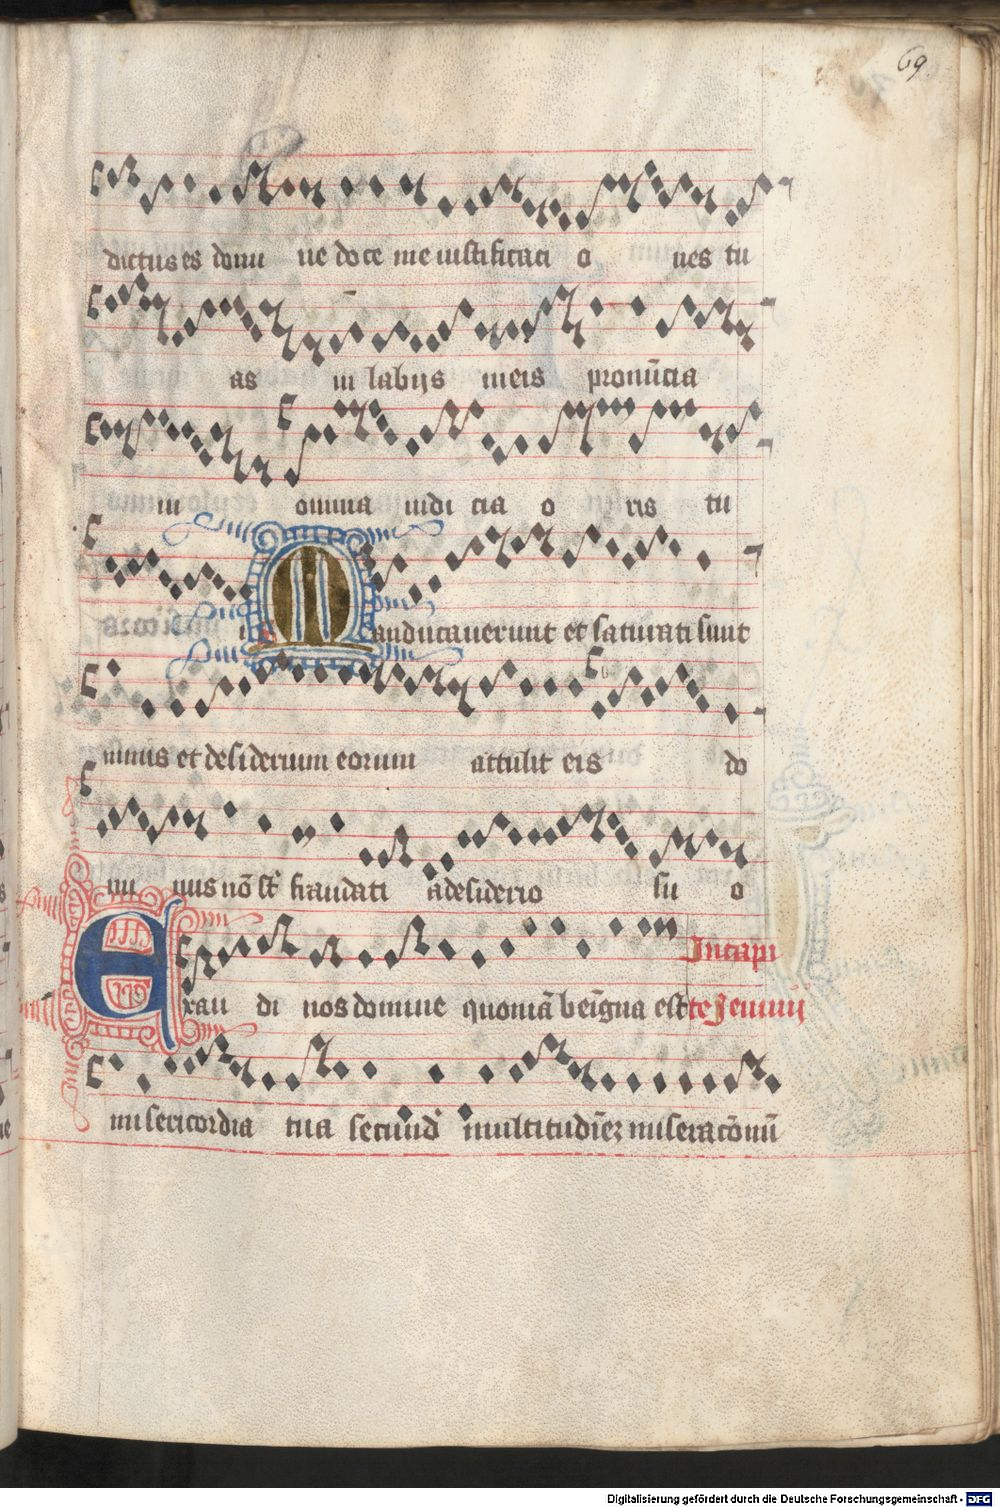 69
dictus es domi ne doce me iustificati o nes tu
as in labijs meis pronūcia
ui omnia iudi cia o ris tu
i M anducauerunt et saturati sunt
nimis et desiderium eorum attulit eis do
mi nus nō st̄ fraudati adesiderio su o
Incapi
Exau di nos domine quoniā beīgna est te Jeiunij
misericordia tua secund' multitudīez miseracōnū
Digitalisierung gefördert durch die Deutsche Forschungsgemeinschaft - DFG